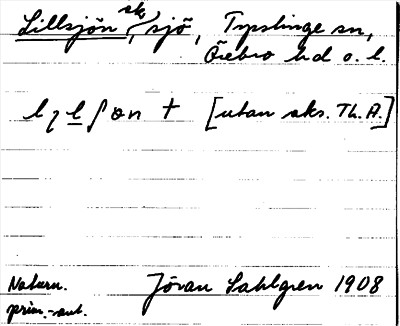 Lillsjön sks, sjö, Tysslinge sn,
Örebro hd o. l.
lɩlʃɵn † [utan aks. Th. A.]
Naturn. Jöran Sahlgren 1908
prim.-ant.